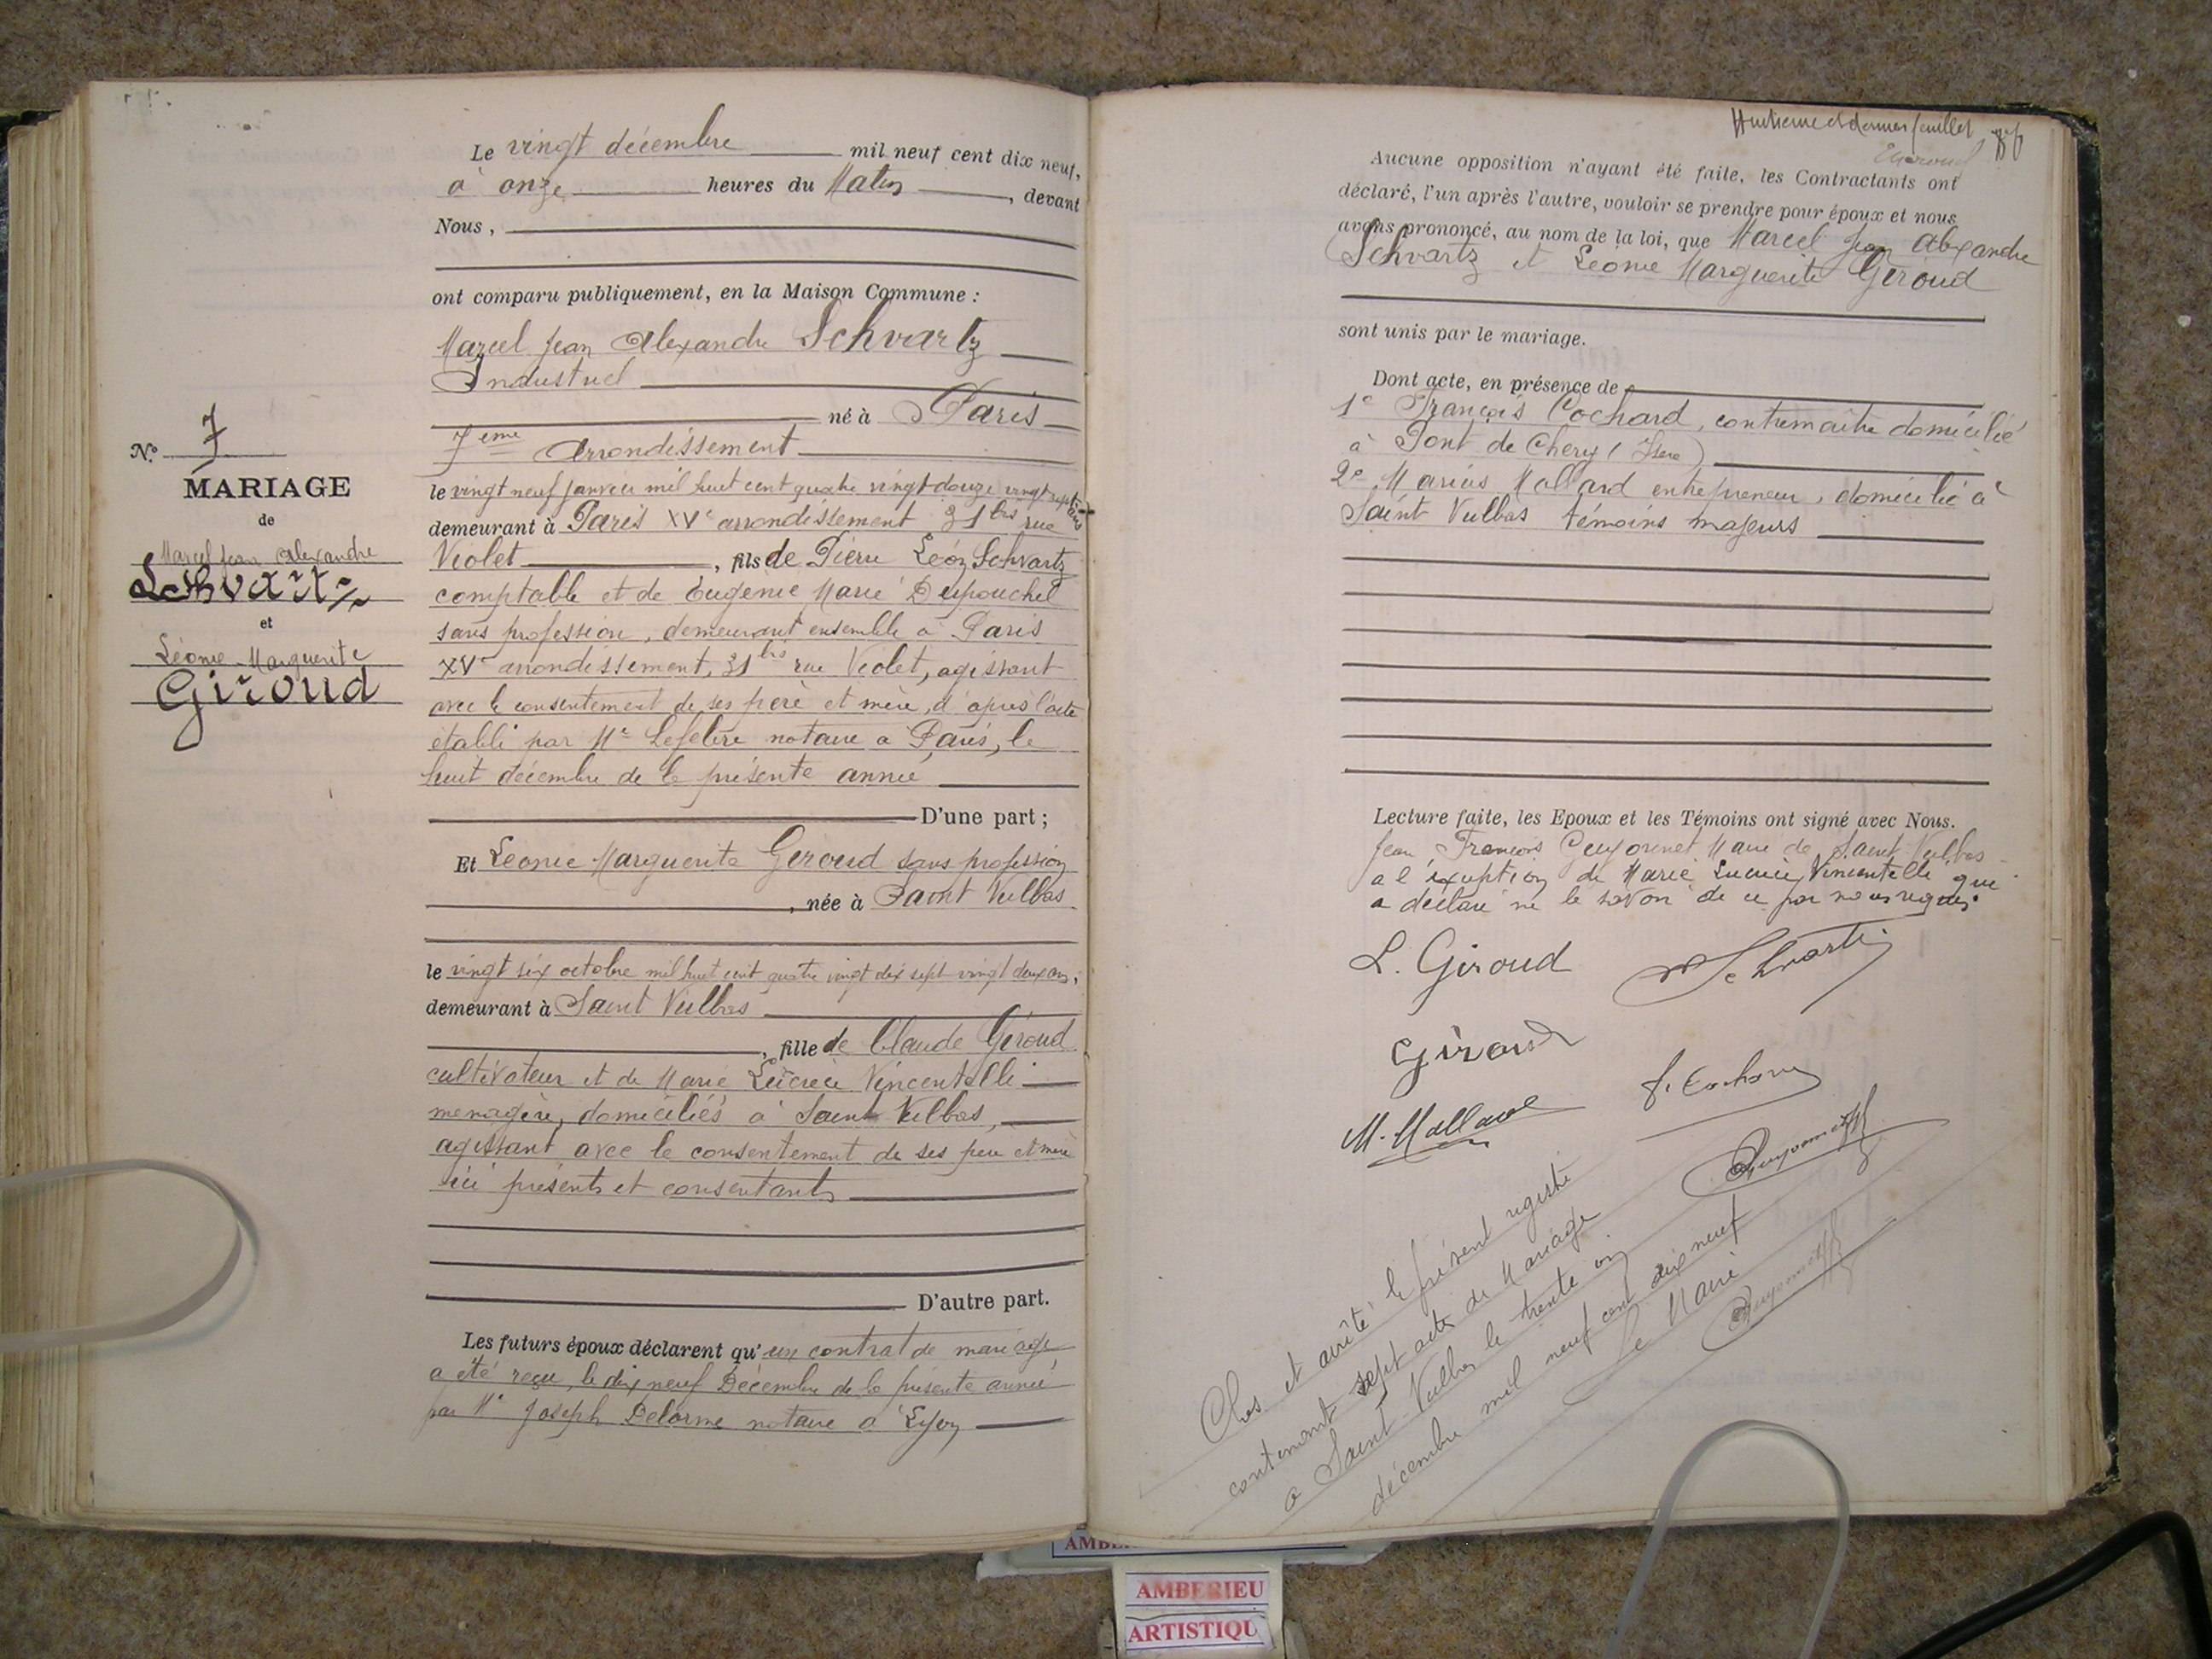 Le vingt décembre mil neuf cent dix neuf,
à onze heures du Matin, devant
Nous,
ont comparu publiquement, en la Maison Commune :
Marcel Jean Alexandre Schvartz
Industriel
né à Paris
7ème Arrondissement
le vingt neuf janvier mil huit cent quatre vingt douze vingt sept ans
demeurant à Paris XVe arrondissement 31 bis rue
Violet, fils de Pierre Léon Schvartz
comptable et de Eugénie Marie
sans profession, demeurant ensemble à Paris
XVe arrondissement, 31 bis rue Violet, agissant
avec le consentement de ses père et mère, d'après l'acte
établi par Me Lefebvre notaire à Paris, le
huit décembre de la présente année
D'une part ;
Et Léonie Marguerite Giroud sans profession
, née à Saint Vulbas
le vingt six octobre mil huit cent quatre vingt dix sept vingt deux ans,
demeurant à Saint Vulbas
, fille de Claude Giroud
cultivateur et de Marie Lucrèce Vincentelli
ménagère, domiciliés à Saint Vulbas,
agissant avec le consentement de ses père et mère
ici présents et consentants
D'autre part.
Les futurs époux déclarent qu'un contrat de mariage
a été reçu, le dix neuf Décembre de la présente année
par Me Joseph Delorme notaire à Lyon
No 7
MARIAGE
de
Marcel Jean Alexandre
Schvartz
et
Léonie-Marguerite
Giroud
Huitième et dernier feuillet
Aucune opposition n'ayant été faite, les Contractants ont
déclaré, l'un après l'autre, vouloir se prendre pour époux et nous
avons prononcé, au nom de la loi, que Marcel Jean Alexandre
Schvartz et Léonie Marguerite Giroud
sont unis par le mariage.
Dont acte, en présence de
1e François Cochard, contremaître domicilié
à Pont de Chery (Isère)
2e Marius Mollard entrepreneur, domicilié à
Saint Vulbas témoins majeurs
Lecture faite, les Epoux et les Témoins ont signé avec Nous.
Jean François Guyonnet Maire de Saint Vulbas
a l'exception de Marie Lucrèce Vincentelli qui
a déclaré ne le savoir de ce par nous requis.
L. Giroud
Schvartz
Giroud
F. Cochard
M. Mollard
Guyonnet
Clos et arrêté le présent registre
contenant sept actes de Mariage
à Saint Vulbas le trente un
décembre mil neuf cent dix neuf
Le Maire
Guyonnet
AMBERIEU
ARTISTIQU